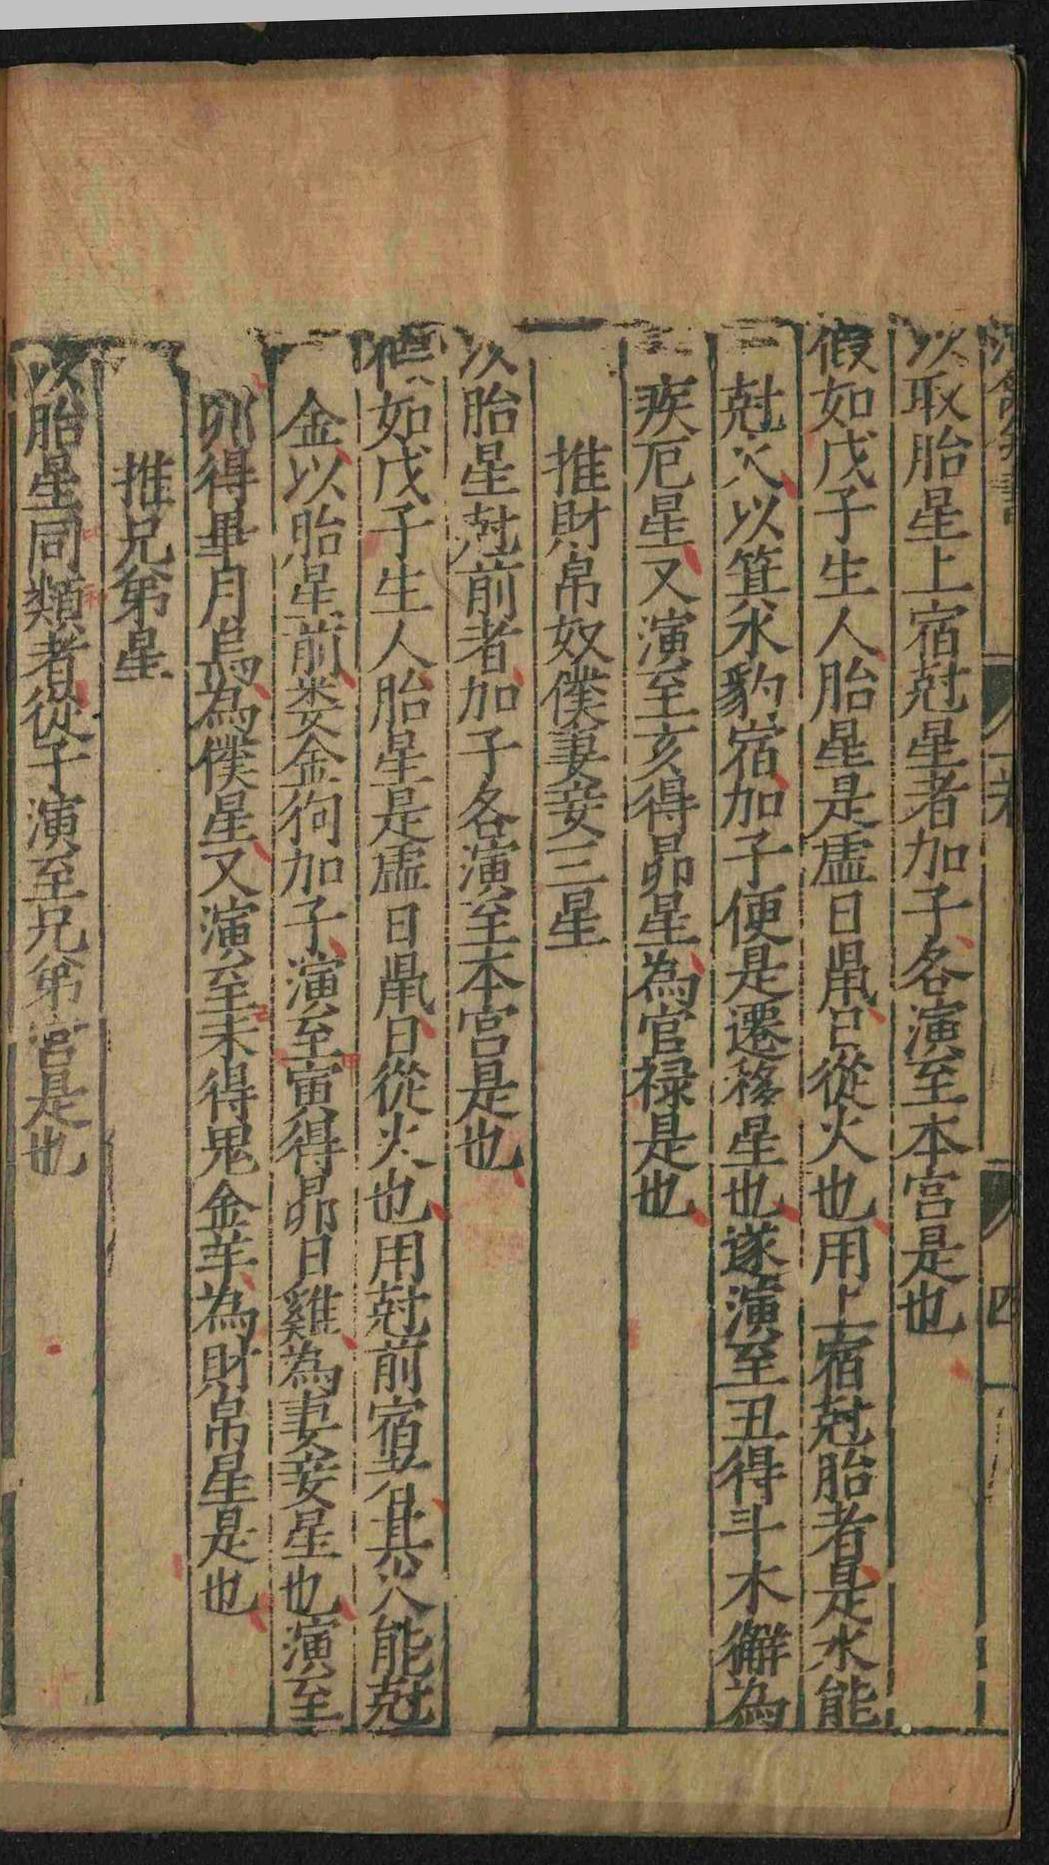 四
以取胎星上宿尅星者加子各演至本宮是也
假如戊子生人胎星是虛日鼠日從火也用上宿尅胎者是水能
尅火以箕水豹宿加子便是遷移星也遂演至丑得斗木獬為
疾厄星又演至亥得昴星為官禄是也
推財帛奴僕妻妾三星
以胎星尅前者加子各演至本宮是也
假如戊子生人胎星是虛日鼠日從火也用尅前宿者其火能尅
金以胎星前娄金狗加子演至寅得昴日雞為妻妾星也演至
卯得畢月烏為僕星又演至未得鬼金羊為財帛星是也
推兄弟星
以胎星同類者從子演至兄弟宮是也